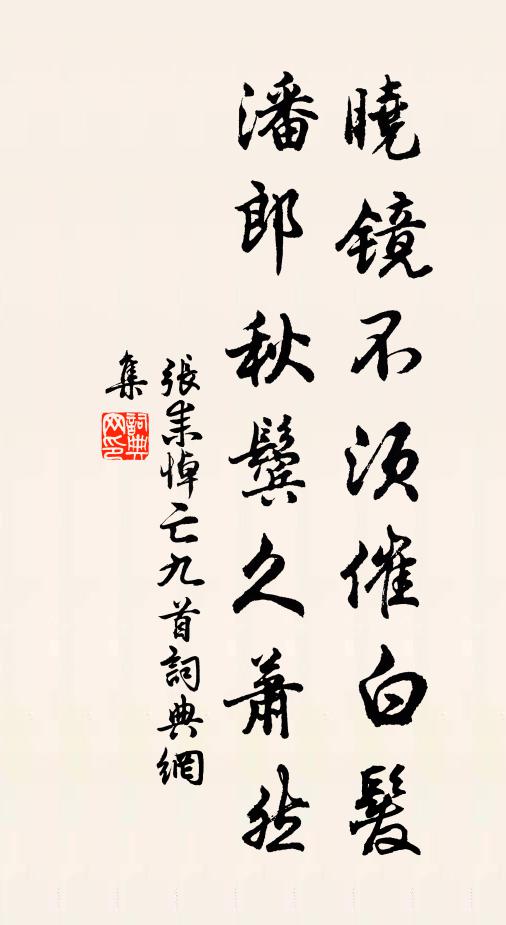 曉鏡不須催白髮
潘郎秋鬢久蕭然
張耒悼亡九首詞典網
集
詞典網印